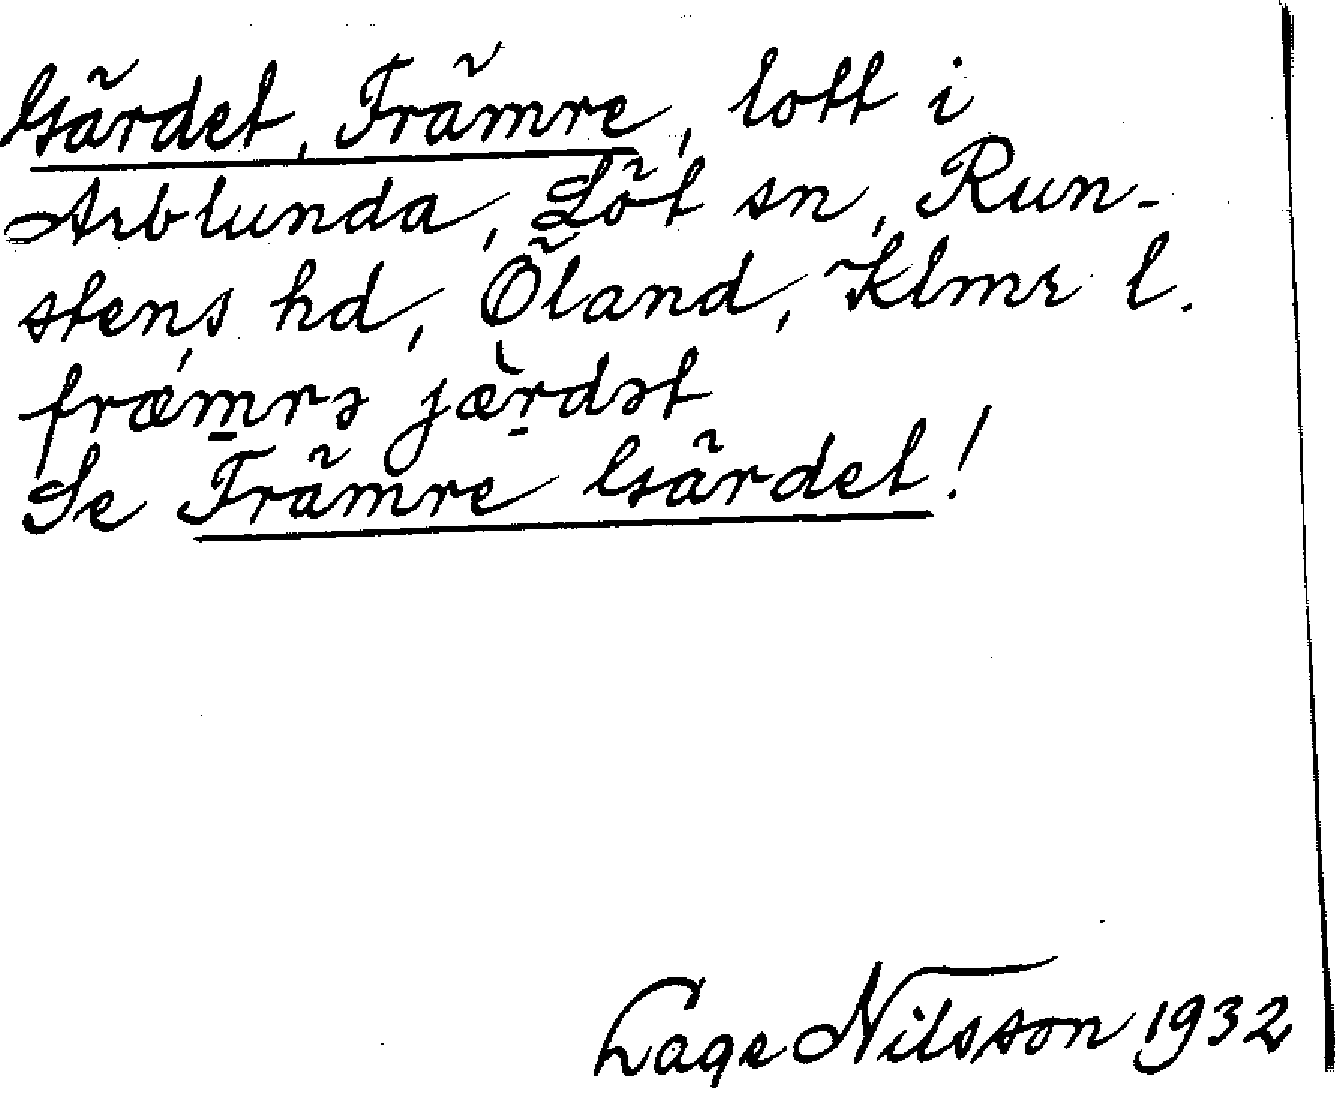 Gärdet, Främre, lott i
Arblunda, Löt sn, Run-
stens hd, Öland, Klmr l.
fræ´m̲rə jæ̀r̲dət
Se Främre Gärdet!
Lage Nilsson 1932